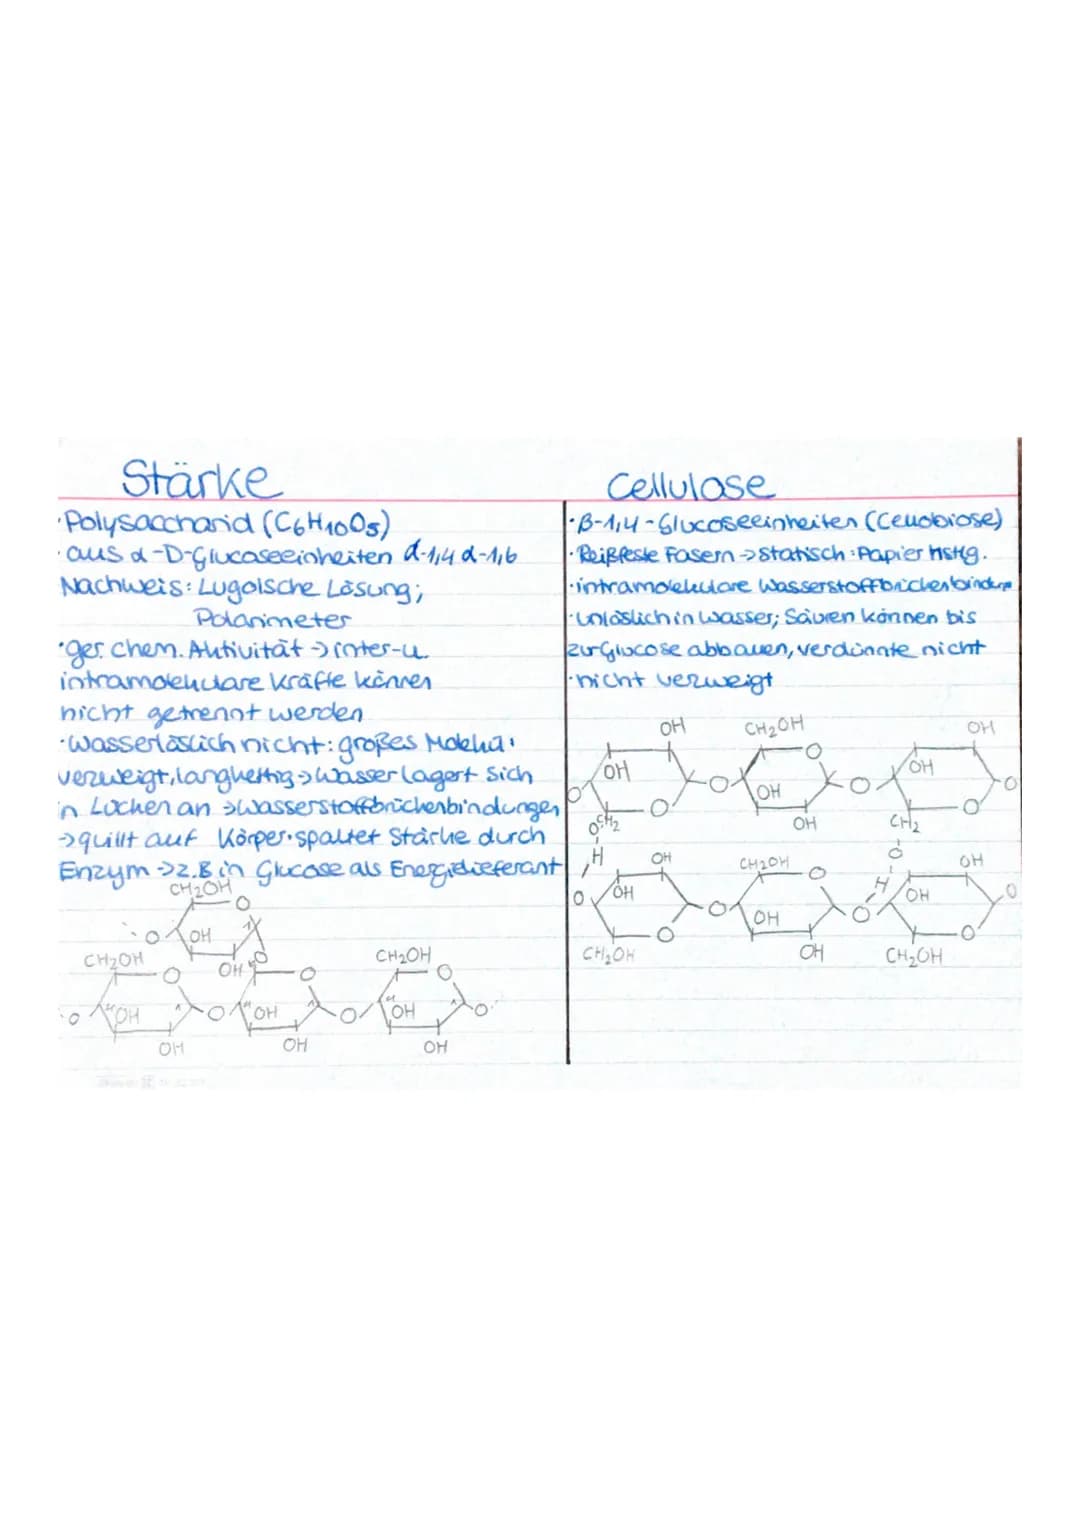 Stärke
·Polysaccharid (C6H10O5)
·aus α-D-Glucoseeinheiten α-1,4 α-1,6
Nachweis: Lugolsche Lösung;
Polarimeter
·ger. chem. Aktivität → inter-u.
intramolekulare Kräfte können
nicht getrennt werden
·wasserlöslich nicht: großes Molekül
verzweigt, langkettig → Wasser lagert sich
in Lücken an → Wasserstoffbrückenbindungen
→ quillt auf Körper·spaltet Stärke durch
Enzym → z.B in Glucose als Energielieferant
CH2OH
O
O OH
OH O
CH2OH O O CH2OH O
O 4 OH 1 O 4 OH 1 O 4 OH 1 O
OH OH OH
Cellulose
·β-1,4-Glucoseeinheiten (Cellobiose)
·Reißfeste Fasern → statisch: Papier hstlg.
·intramolekulare Wasserstoffbrückenbindung
·unlöslich in Wasser; Säuren können bis
zur Glucose abbauen, verdünnte nicht
·nicht verzweigt
OH CH2OH OH
O
OH O OH O OH O
O O OH O
CH2 CH2
O O
H OH CH2OH O H OH
O OH O OH O OH O
O O
CH2OH OH CH2OH